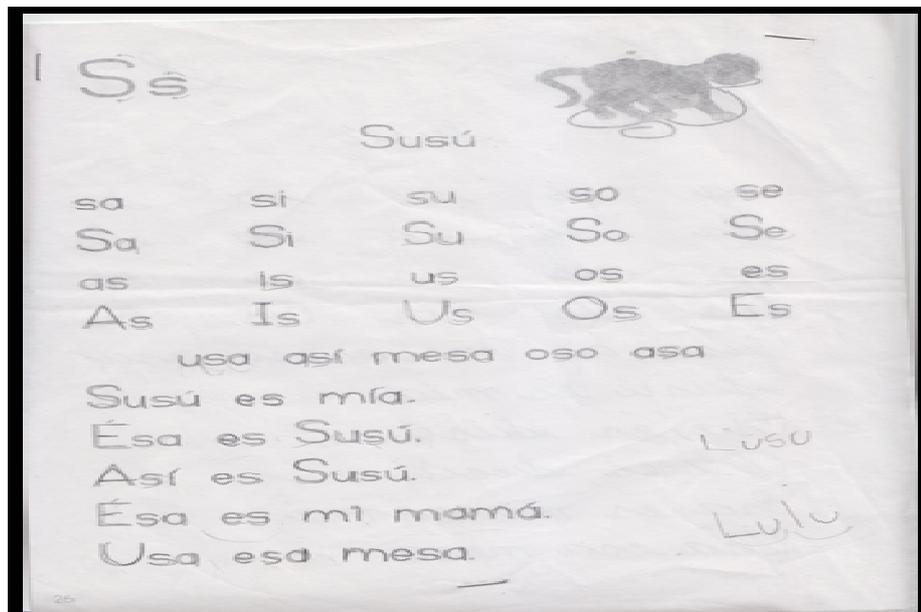 Ss
Susú
sa si su so se
Sa Si Su So Se
as is us os es
As Is Us Os Es
usa así mesa oso asa
Susú es mía.
Ésa es Susú.
Lusu
Así es Susú.
Ésa es mi mamá.
Lulu
Usa esa mesa.
26